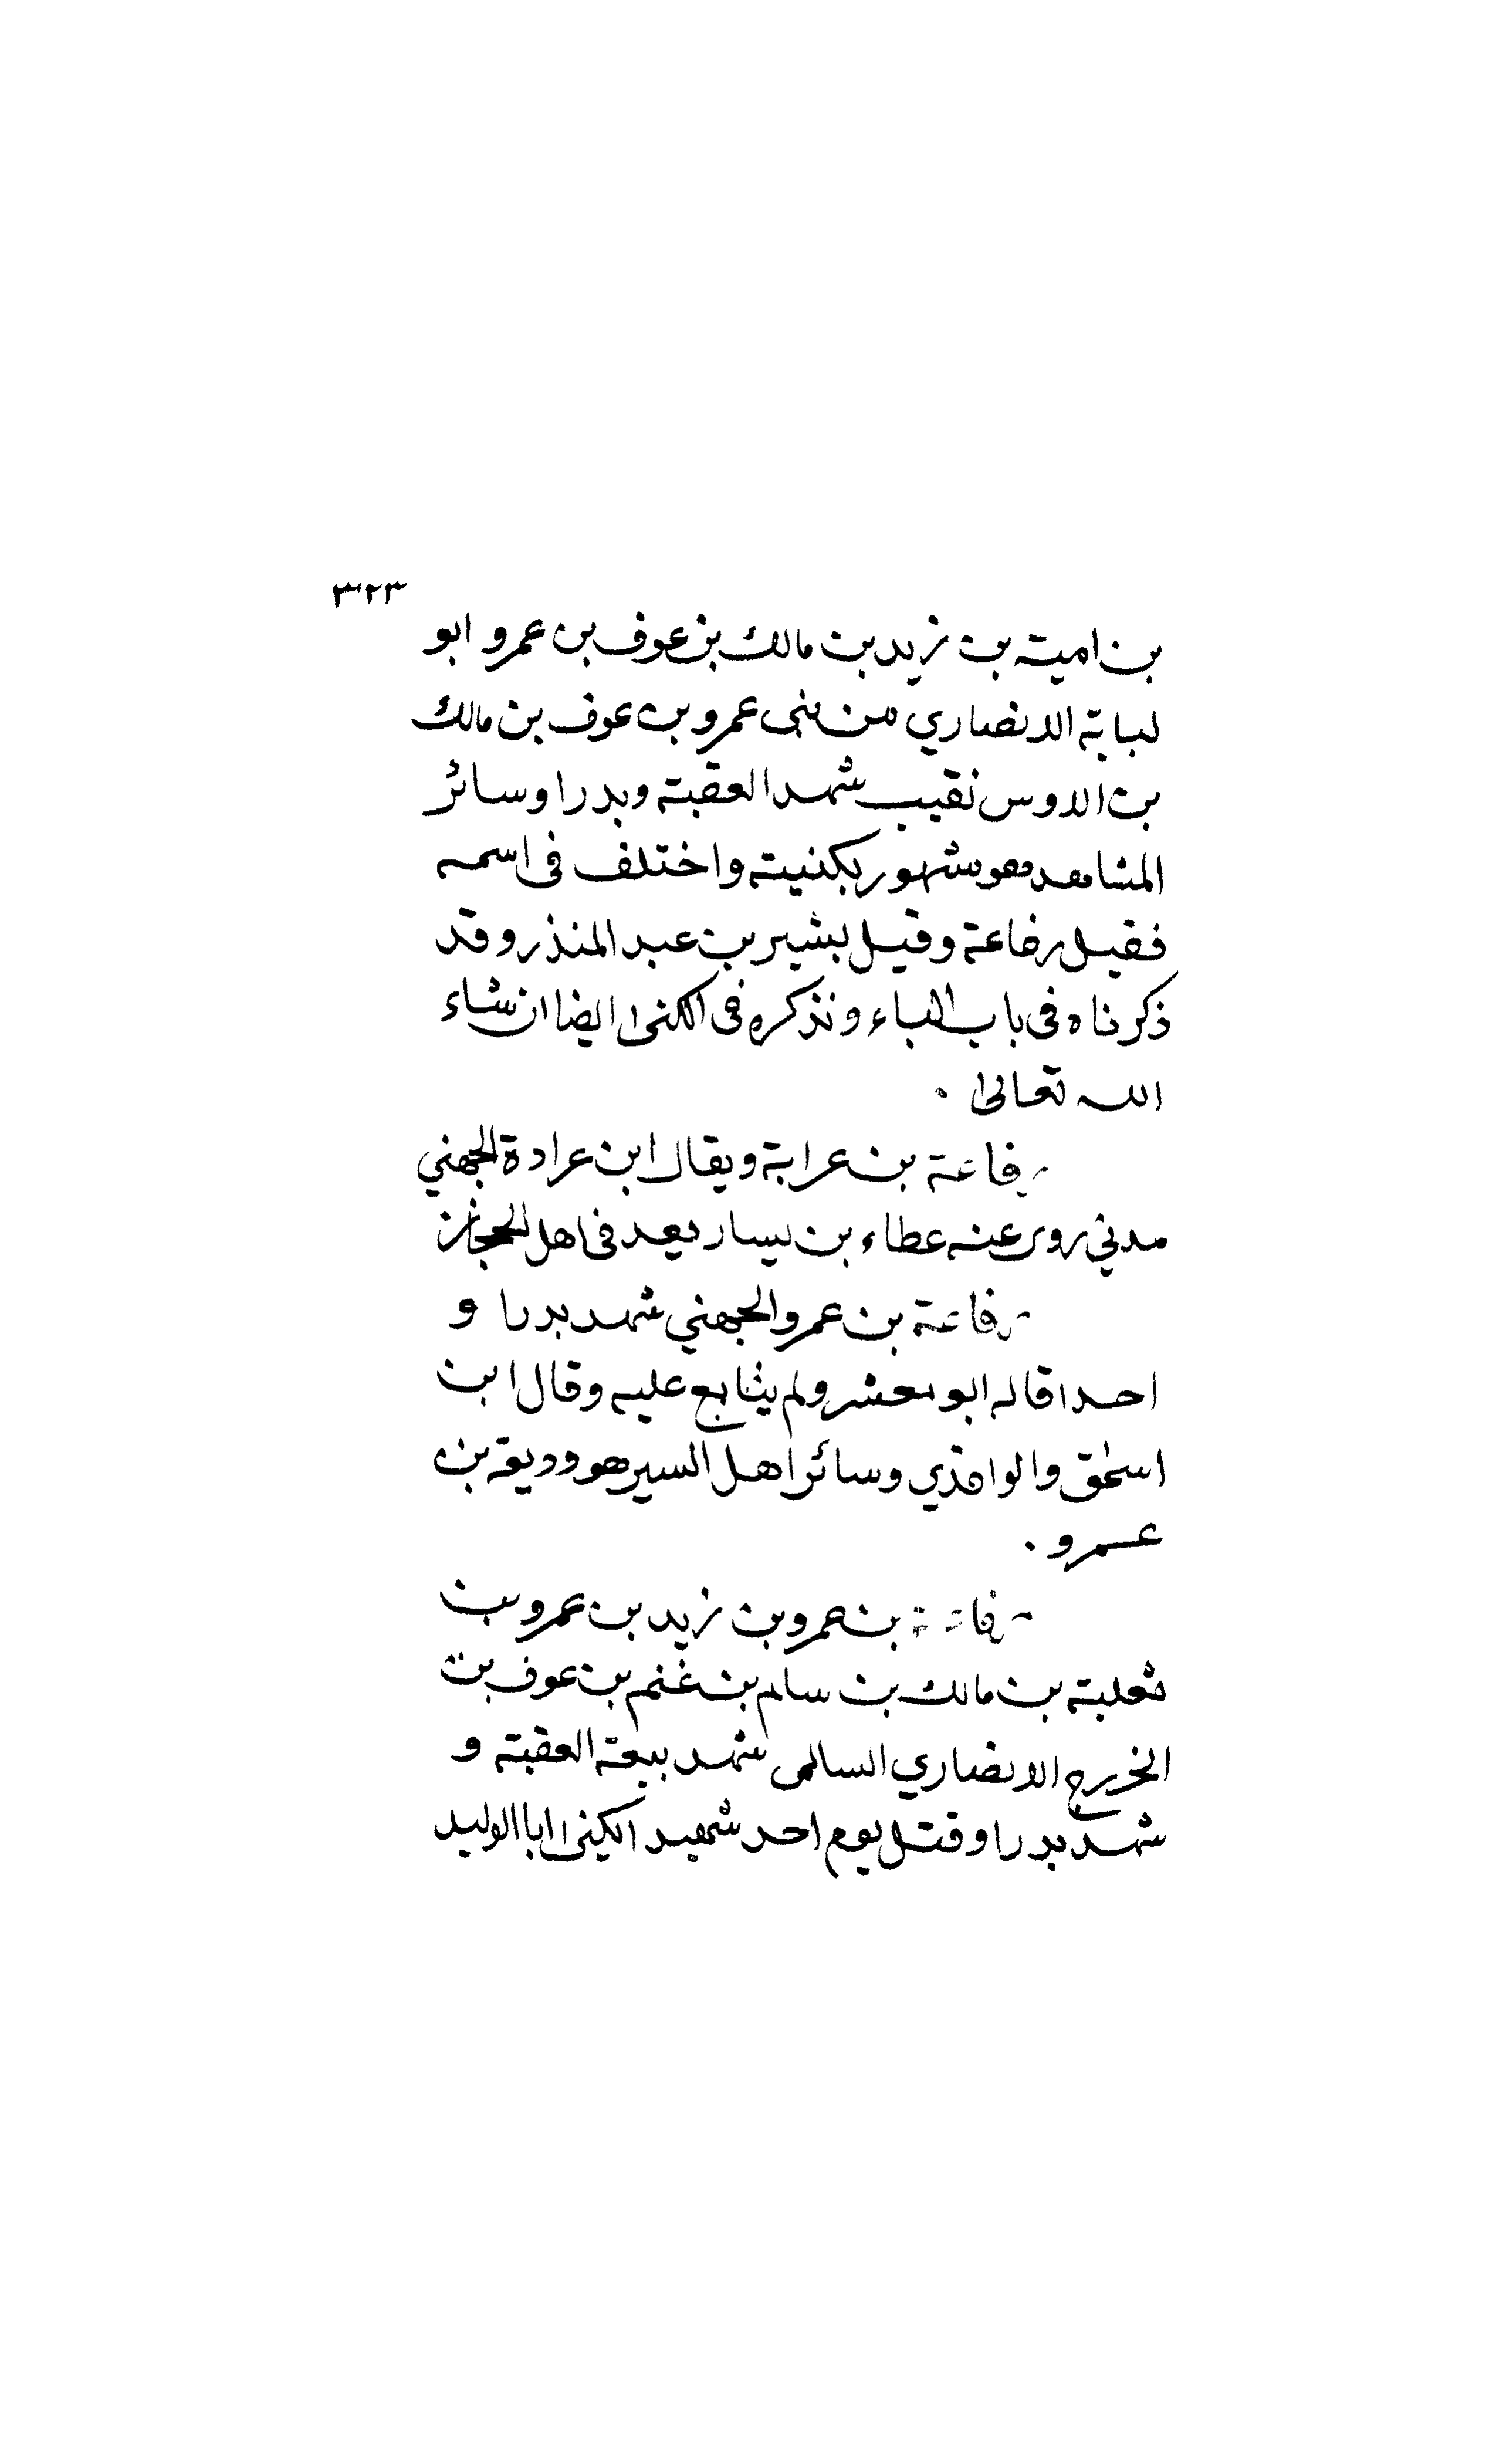 ٣٢٣
بن امية بن زيد بن مالك بن عوف بن عمرو ابو
لبابة الانصاري من بنى عمرو بن عوف بن مالك
بن الاوس نقيب شهد العقبة وبدرا وسائر
المشاهد وهو مشهور بكنيته واختلف فى اسمه
فقيل رفاعة وقيل بشير بن عبد المنذر وقد
ذكرناه فى باب الباء ونذكره فى الكنى ايضا ان شاء
الله تعالى ٠
رفاعة بن عرابة ويقال ابن عرادة الجهني
مدني روى عنه عطاء بن يسار يعد فى اهل الحجاز
رفاعة بن عمرو الجهني شهد بدرا و
احدا قاله ابو معشر ولم يتابع عليه وقال ابن
اسحٰق والواقدي وسائر اهل السير هو وديعة بن
عمرو ٠
رفاعة بن عمرو بن زيد بن عمرو بن
ثعلبة بن مالك بن سالم بن غنم بن عوف بن
الخزرج الانصاري السالمى شهد بيعة العقبة و
شهد بدرا وقتل يوم احد شهيد ايكنى ابا الوليد